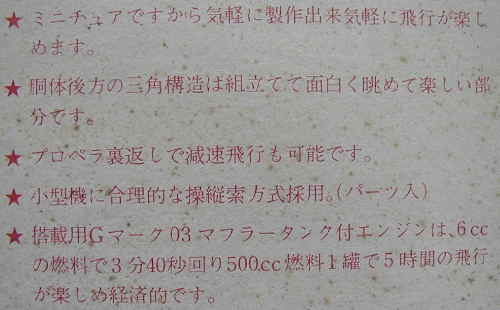 ★ ミニチュアですから気軽に製作出来気軽に飛行が楽し
めます。
★ 胴体後方の三角構造は組立てて面白く眺めて楽しい部
分です。
★ プロペラ裏返しで減速飛行も可能です。
★ 小型機に合理的な操縦索方式採用。(パーツ入)
★ 搭載用Gマーク03マフラータンク付エンジンは、6cc
の燃料で3分40秒回り500cc燃料1罐で5時間の飛行
が楽しめ経済的です。